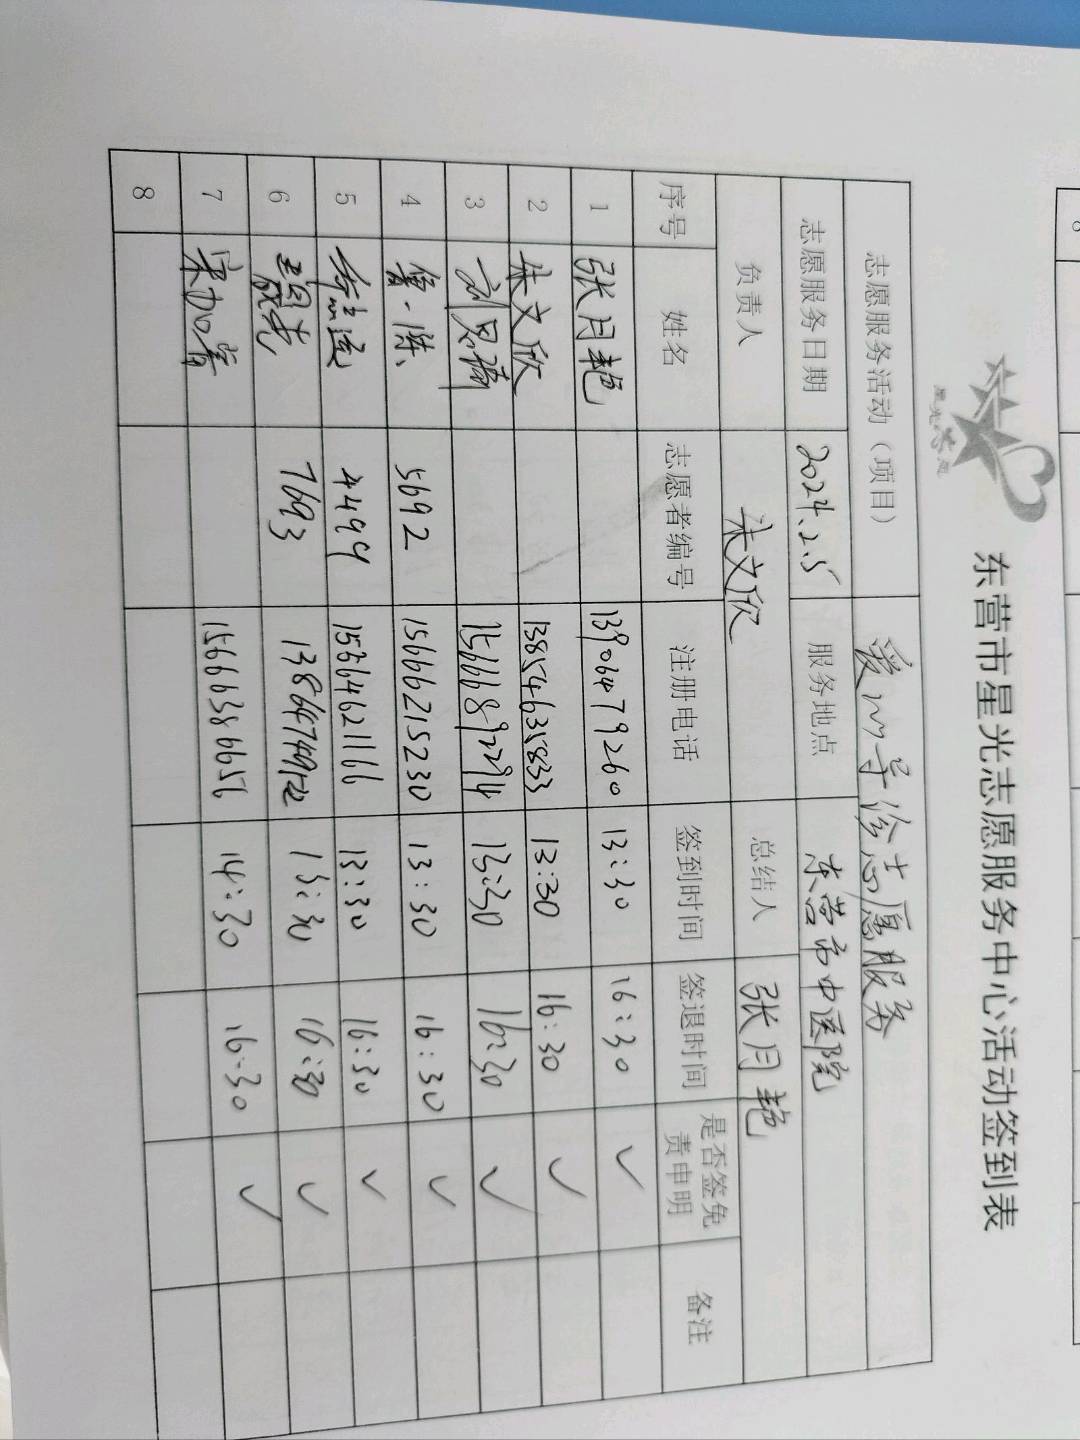 星光志愿
东营市星光志愿服务中心活动签到表
志愿服务活动（项目） 爱心导诊志愿服务
志愿服务日期 2024.2.5 服务地点 东营市中医院
负责人 朱文欣 总结人 张月艳
序号 姓名 志愿者编号 注册电话 签到时间 签退时间 是否签免责申明 备注
1 张月艳 13906479260 13:30 16:30 ✓
2 朱文欣 13854635833 13:30 16:30 ✓
3 13:30 16:30 ✓
4 5692 15666215230 13:30 16:30 ✓
5 4499 13:30 16:30 ✓
6 7693 13:30 16:30 ✓
7 15666386656 14:30 16:30 ✓
8